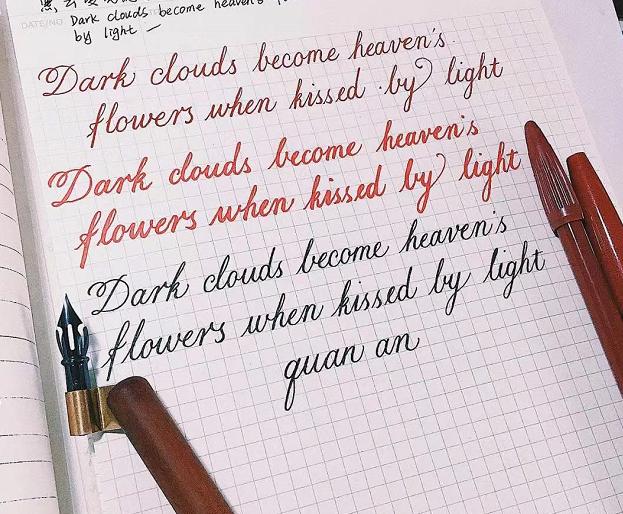 DATE/NO.
Dark clouds become heaven's
by light —
Dark clouds become heaven's
flowers when kissed by light
Dark clouds become heaven's
flowers when kissed by light
Dark clouds become heaven's
flowers when kissed by light
quan an